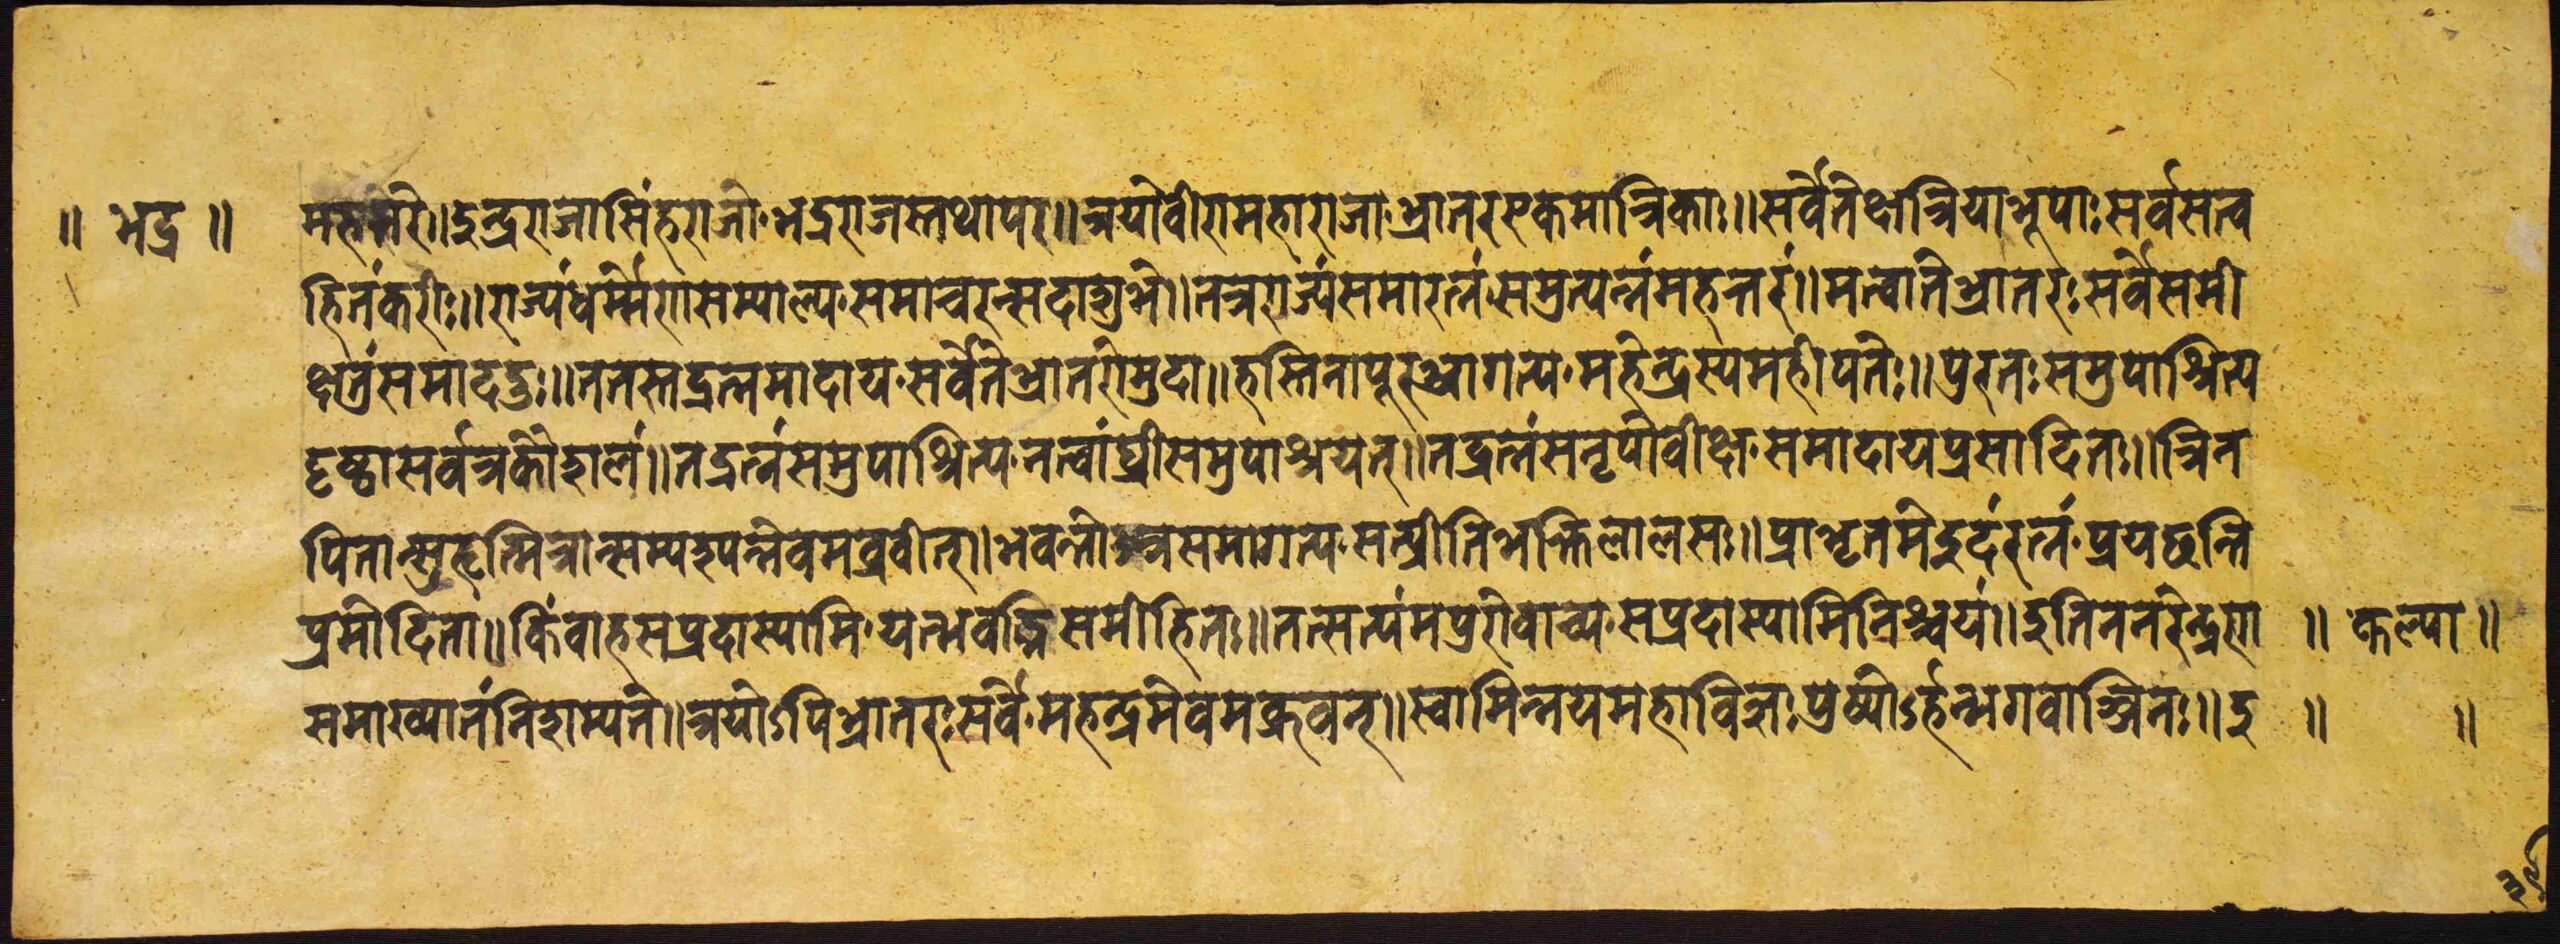 ॥ भद्र ॥ महत्तरे॥इन्द्रराजासिंहराजो·भद्रराजस्तथापरः॥त्रयोवीरामहाराजा·भ्रातरएकमात्रिकाः॥सर्वेतेक्षत्रियाभूपाः सर्वसत्व
हितंकरोः॥राज्यंधर्म्मेणसम्पाल्य·समाचरन्सदाशुभे॥तत्रराज्यंसमारत्नं·समुत्पन्नंमहत्तरं॥मत्वातेभ्रातरः सर्वेसमी
क्षतुंसमाददुः॥ततस्तद्रत्नमादाय·सर्वेतेभ्रातरोमुदा॥हस्तिनापूरआगत्य·महेन्द्रस्यमहीपतेः॥पुरतः समुपाश्रित्य
दृष्ट्वासर्वत्रकौशलं॥तद्रत्नंसमुपाश्रित्य·नत्वांघ्रीसमुपाश्रयेत्॥तद्रत्नंसनृपोवीक्ष्य·समादायप्रसादितः॥त्रिन
पितान्सुहृत्मित्रान्सम्पश्यन्नेवमव्रवीत्॥भवन्तो त्रसमागत्य·सत्प्रीतिभक्तिलालसः॥प्राभृतमेइदंरत्नं·प्रयछन्ति
प्रमोदिता॥किंवाहसप्रदास्यामि·यत्भवद्भिसमीहितः॥तत्सत्यंमपुरोवाच्य·सप्रदास्यामिनिश्चयं॥इतितेनरेन्द्रण ॥ कल्पा ॥
समाख्यानंनिशम्यते॥त्रयोऽपिभ्रातरः सर्वे·महेन्द्रमेवमव्रुवन्॥स्वामिन्नयमहाविज्ञः प्रेष्योऽर्हन्भगवाञ्जिनः॥इ ॥ ॥